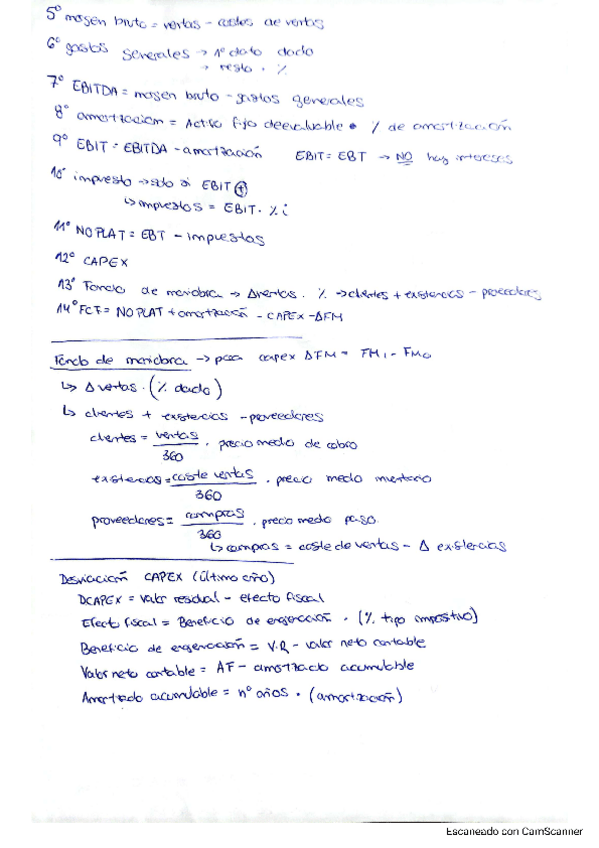 5º margen bruto = ventas - costes de ventas
6º gastos generales → 1º dato dado
→ resto · %
7º EBITDA = margen bruto - gastos generales
8º amortización = Activo fijo devaluable · % de amortización
9º EBIT = EBITDA - amortización EBIT = EBT → NO hay intereses
10º impuesto → solo si EBIT ⊕
↳ impuestos = EBIT · % i
11º NOPLAT = EBT - impuestos
12º CAPEX
13º Fondo de maniobra → Δventas · % → clientes + existencias - proveedores
14º FCF = NOPLAT + amortización - CAPEX - ΔFM
Fondo de maniobra → para capex ΔFM = FM1 - FM0
↳ Δ ventas · (% dado)
↳ clientes + existencias - proveedores
clientes = ventas / 360 · precio medio de cobro
existencias = coste ventas / 360 · precio medio inventario
proveedores = compras / 360 · precio medio pago
↳ compras = coste de ventas - Δ existencias
Desviación CAPEX (último año)
DCAPEX = Valor residual - efecto fiscal
Efecto fiscal = Beneficio de enajenación · (% tipo impositivo)
Beneficio de enajenación = V.R - valor neto contable
Valor neto contable = AF - amortizado acumulable
Amortizado acumulable = nº años · (amortización)
Escaneado con CamScanner